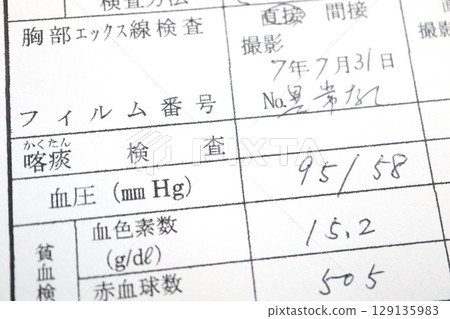 検査方法
胸部エックス線検査
直接 間接
撮影
7年7月31日
フィルム番号
No.異常なし
かくたん
喀痰 検査
血圧(mm Hg)
95/58
貧血検
血色素数
(g/dℓ)
15.2
赤血球数
505
PIXTA
pixta.jp - 129135983